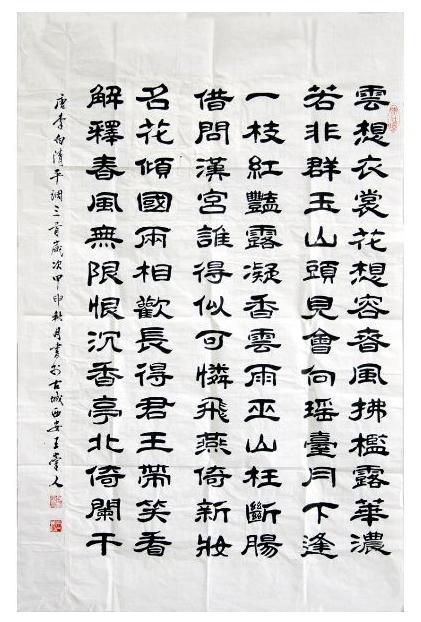 雲想衣裳花想容春風拂檻露華濃
若非群玉山頭見會向瑤臺月下逢
一枝紅豔露凝香雲雨巫山枉斷腸
借問漢宮誰得似可憐飛燕倚新妝
名花傾國兩相歡長得君王帶笑看
解釋春風無限恨沉香亭北倚闌干
唐李白清平調三首歲次甲申秋月書於古城西安王